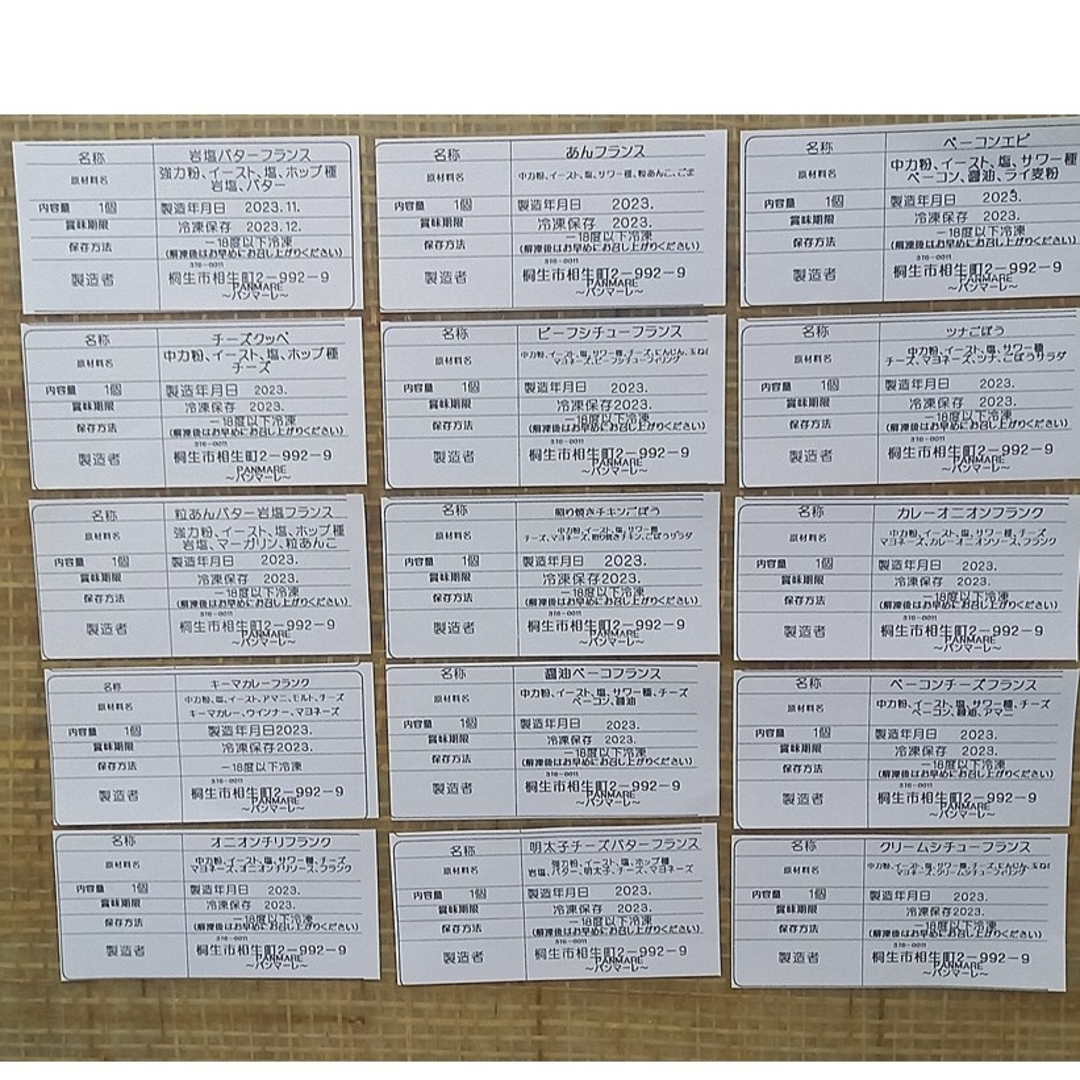 名称 岩塩バターフランス
原材料名 強力粉、イースト、塩、ホップ種
岩塩、バター
内容量 1個 製造年月日 2023.11.
賞味期限 冷凍保存 2023.12.
保存方法 −18度以下冷凍
(解凍後はお早めにお召し上がりください)
376−0011
製造者 桐生市相生町2−992−9
PANMARE
～パンマーレ～
名称 あんフランス
原材料名 中力粉、イースト、塩、サワー種、粒あんこ、ごま
内容量 1個 製造年月日 2023.
賞味期限 冷凍保存 2023.
保存方法 −18度以下冷凍
(解凍後はお早めにお召し上がりください)
376−0011
製造者 桐生市相生町2−992−9
PANMARE
～パンマーレ～
名称 ベーコンエピ
原材料名 中力粉、イースト、塩、サワー種
ベーコン、醤油、ライ麦粉
内容量 1個 製造年月日 2023.
賞味期限 冷凍保存 2023.
保存方法 −18度以下冷凍
(解凍後はお早めにお召し上がりください)
376−0011
製造者 桐生市相生町2−992−9
PANMARE
～パンマーレ～
名称 チーズクッペ
原材料名 中力粉、イースト、塩、ホップ種
チーズ
内容量 1個 製造年月日 2023.
賞味期限 冷凍保存 2023.
保存方法 −18度以下冷凍
(解凍後はお早めにお召し上がりください)
376−0011
製造者 桐生市相生町2−992−9
PANMARE
～パンマーレ～
名称 ビーフシチューフランス
原材料名 中力粉、イースト、塩、サワー種、チーズ、にんじん、玉ねぎ
マヨネーズ、ビーフシチューフィリング
内容量 1個 製造年月日 2023.
賞味期限 冷凍保存2023.
保存方法 −18度以下冷凍
(解凍後はお早めにお召し上がりください)
376−0011
製造者 桐生市相生町2−992−9
PANMARE
～パンマーレ～
名称 ツナごぼう
原材料名 中力粉、イースト、塩、サワー種
チーズ、マヨネーズ、ツナ、ごぼうサラダ
内容量 1個 製造年月日 2023.
賞味期限 冷凍保存 2023.
保存方法 −18度以下冷凍
(解凍後はお早めにお召し上がりください)
376−0011
製造者 桐生市相生町2−992−9
PANMARE
～パンマーレ～
名称 粒あんバター岩塩フランス
原材料名 強力粉、イースト、塩、ホップ種
岩塩、マーガリン、粒あんこ
内容量 1個 製造年月日 2023.
賞味期限 冷凍保存 2023.
保存方法 −18度以下冷凍
(解凍後はお早めにお召し上がりください)
376−0011
製造者 桐生市相生町2−992−9
PANMARE
～パンマーレ～
名称 照り焼きチキンごぼう
原材料名 中力粉、イースト、塩、サワー種
チーズ、マヨネーズ、照り焼きチキン、ごぼうサラダ
内容量 1個 製造年月日 2023.
賞味期限 冷凍保存2023.
保存方法 −18度以下冷凍
(解凍後はお早めにお召し上がりください)
376−0011
製造者 桐生市相生町2−992−9
PANMARE
～パンマーレ～
名称 カレーオニオンフランク
原材料名 中力粉、イースト、塩、サワー種、チーズ
マヨネーズ、カレーオニオンソース、フランク
内容量 1個 製造年月日 2023.
賞味期限 冷凍保存 2023.
保存方法 −18度以下冷凍
(解凍後はお早めにお召し上がりください)
376−0011
製造者 桐生市相生町2−992−9
PANMARE
～パンマーレ～
名称 キーマカレーフランク
原材料名 中力粉、塩、イースト、アマニ、モルト、チーズ
キーマカレー、ウインナー、マヨネーズ
内容量 1個 製造年月日2023.
賞味期限 冷凍保存2023.
保存方法 −18度以下冷凍
376−0011
製造者 桐生市相生町2−992−9
PANMARE
～パンマーレ～
名称 醤油ベーコフランス
原材料名 中力粉、イースト、塩、サワー種、チーズ
ベーコン、醤油
内容量 1個 製造年月日 2023.
賞味期限 冷凍保存 2023.
保存方法 −18度以下冷凍
(解凍後はお早めにお召し上がりください)
376−0011
製造者 桐生市相生町2−992−9
PANMARE
～パンマーレ～
名称 ベーコンチーズフランス
原材料名 中力粉、イースト、塩、サワー種、チーズ
ベーコン、醤油、アマニ
内容量 1個 製造年月日 2023.
賞味期限 冷凍保存 2023.
保存方法 −18度以下冷凍
(解凍後はお早めにお召し上がりください)
376−0011
製造者 桐生市相生町2−992−9
PANMARE
～パンマーレ～
名称 オニオンチリフランク
原材料名 中力粉、イースト、塩、サワー種、チーズ
マヨネーズ、オニオンチリソース、フランク
内容量 1個 製造年月日 2023.
賞味期限 冷凍保存 2023.
保存方法 −18度以下冷凍
(解凍後はお早めにお召し上がりください)
376−0011
製造者 桐生市相生町2−992−9
PANMARE
～パンマーレ～
名称 明太子チーズバターフランス
原材料名 強力粉、イースト、塩、ホップ種
岩塩、バター、明太子、チーズ、マヨネーズ
内容量 1個 製造年月日 2023.
賞味期限 冷凍保存 2023.
保存方法 −18度以下冷凍
(解凍後はお早めにお召し上がりください)
376−0011
製造者 桐生市相生町2−992−9
PANMARE
～パンマーレ～
名称 クリームシチューフランス
原材料名 中力粉、イースト、塩、サワー種、チーズ、にんじん、玉ねぎ
マヨネーズ、クリームシチューフィリング
内容量 1個 製造年月日 2023.
賞味期限 冷凍保存2023.
保存方法 −18度以下冷凍
(解凍後はお早めにお召し上がりください)
376−0011
製造者 桐生市相生町2−992−9
PANMARE
～パンマーレ～